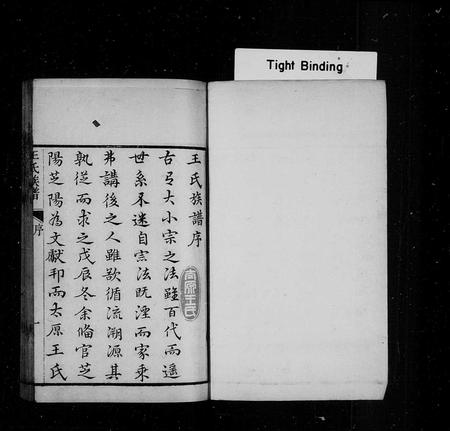 Tight Binding
王氏族譜序
古有大小宗之法雖百代而遙
世系不迷自宗法既湮而家乘
弗講後之人雖欲循流溯源其
孰從而求之戊辰冬余偹官芝
陽芝陽為文獻邦而太原王氏
王氏族譜
序
一
太原王氏